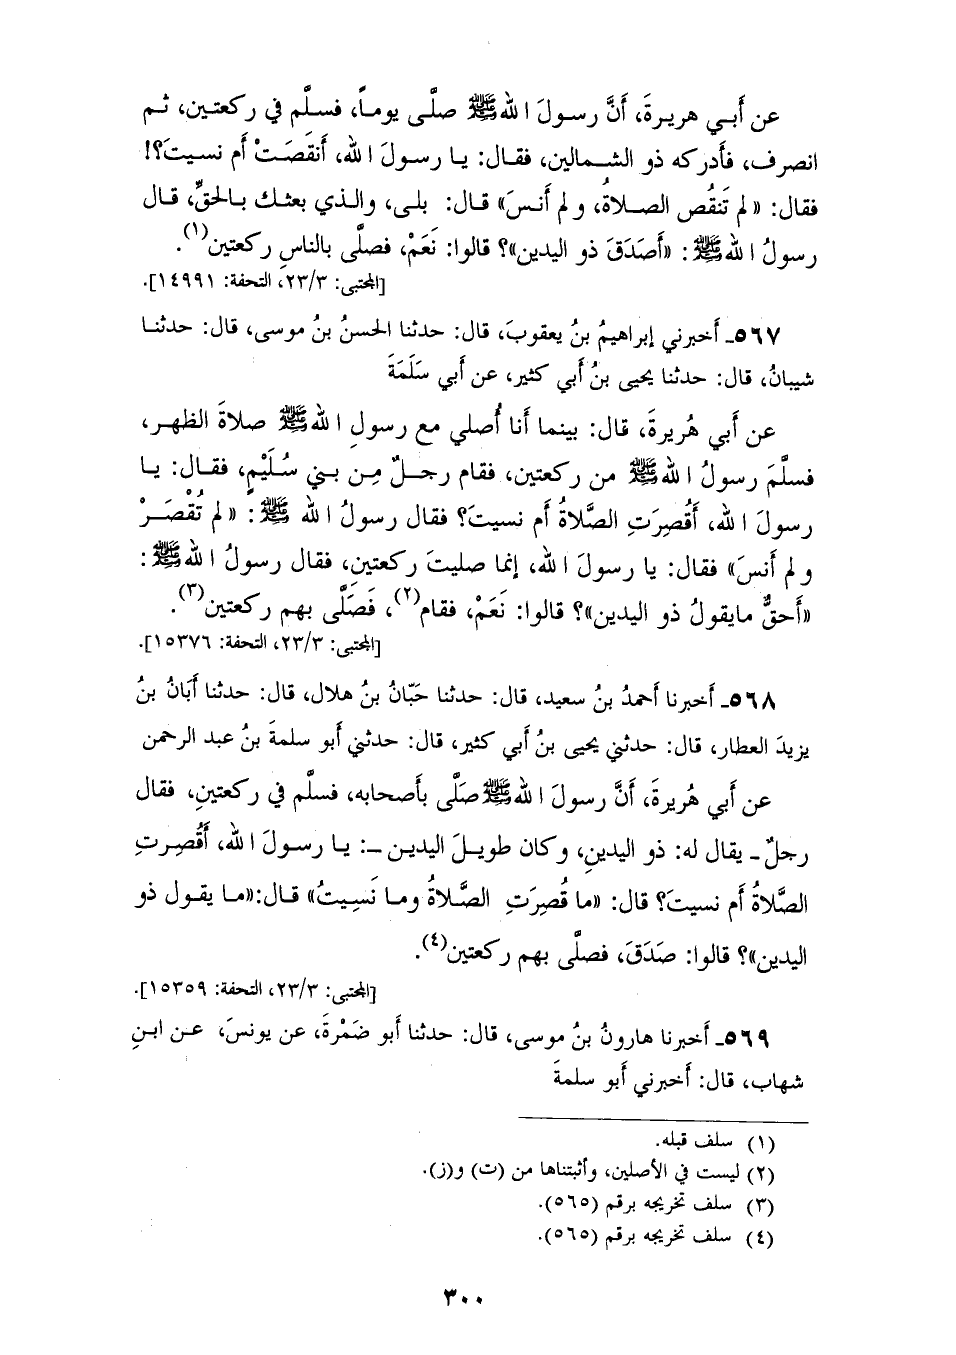 عن أَبي هريرةَ، أنَّ رسولَ اللهﷺ صلَّى يوماً، فسلَّم في ركعتين، ثم
انصرف، فأَدركه ذو الشمالين، فقال: يا رسولَ الله، أَنقَصَتْ أَم نسيتَ؟!
فقال: «لم تَنقُص الصلاةُ، ولم أَنسَ» قال: بلى، والذي بعثك بالحقِّ، قال
رسولُ اللهﷺ: «أَصَدَقَ ذو اليدين»؟ قالوا: نَعَمْ، فصلَّى بالناسِ ركعتين(١).
[المجتبى: ٢٣/٣، التحفة: ١٤٩٩١].
٥٦٧ـ أخبرني إبراهيمُ بنُ يعقوبَ، قال: حدثنا الحسنُ بنُ موسى، قال: حدثنا
شيبانُ، قال: حدثنا يحيى بنُ أبي كثير، عن أبي سَلَمَةَ
عن أَبي هُريرةَ، قال: بينما أَنا أُصلي مع رسولِ اللهﷺ صلاةَ الظهر،
فسلَّمَ رسولُ اللهﷺ من ركعتين، فقام رجلٌ مِن بني سُلَيْمٍ، فقال: يا
رسولَ الله، أَقُصِرَتِ الصَّلاةُ أَم نسيتَ؟ فقال رسولُ الله ﷺ: «لم تُقْصَرْ
ولم أَنسَ» فقال: يا رسولَ الله، إنما صليتَ ركعتين، فقال رسولُ اللهﷺ:
«أَحقٌّ مايقولُ ذو اليدين»؟ قالوا: نَعَمْ، فقام(٢)، فَصَلَّى بهم ركعتين(٣).
[المجتبى: ٢٣/٣، التحفة: ١٥٣٧٦].
٥٦٨ـ أخبرنا أحمدُ بنُ سعيد، قال: حدثنا حَبّانُ بنُ هلال، قال: حدثنا أبَانُ بنُ
يزيدَ العطار، قال: حدثني يحيى بنُ أبي كثير، قال: حدثني أبو سلمةَ بنُ عبد الرحمن
عن أَبي هُريرةَ، أنَّ رسولَ اللهﷺ صَلَّى بأَصحابه، فسلَّم في ركعتينِ، فقال
رجلٌ ـ يقال له: ذو اليدينِ، وكان طويلَ اليدين ـ: يا رسولَ الله، أَقُصِرتِ
الصَّلاةُ أَم نسيتَ؟ قال: «ما قُصِرَتِ الصَّلاةُ وما نَسِيتُ» قال:«ما يقول ذو
اليدين»؟ قالوا: صَدَقَ، فصلَّى بهم ركعتين(٤).
[المجتبى: ٢٣/٣، التحفة: ١٥٣٥٩].
٥٦٩ـ أخبرنا هارونُ بنُ موسى، قال: حدثنا أبو ضَمْرةَ، عن يونسَ، عن ابنِ
شهاب، قال: أخبرني أبو سلمةَ
(١) سلف قبله.
(٢) ليست في الأصلين، وأثبتناها من (ت) و(ز).
(٣) سلف تخريجه برقم (٥٦٥).
(٤) سلف تخريجه برقم (٥٦٥).
٣٠٠